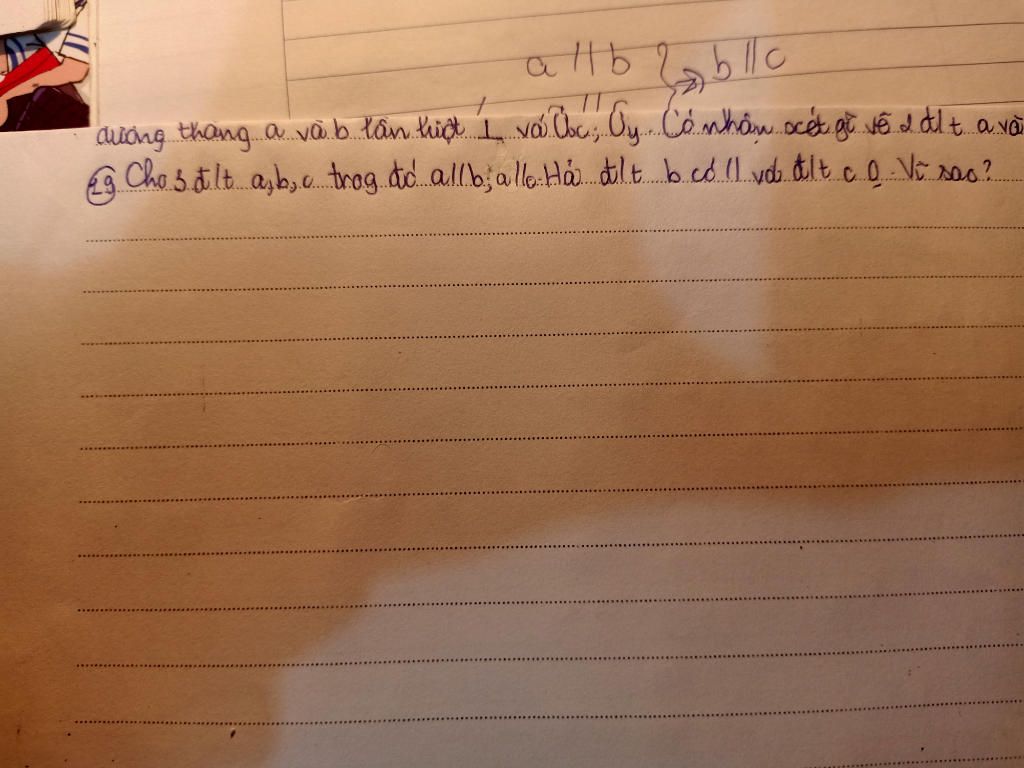 a // b } => b // c
đường thẳng a và b lần lượt ⊥ với Ox; Oy. Có nhận xét gì về 2 đ/t a và
29 Cho 3 đ/t a, b, c trog đó a//b; a//c. Hỏi đ/t b có // với đ/t c 0. Vì sao?